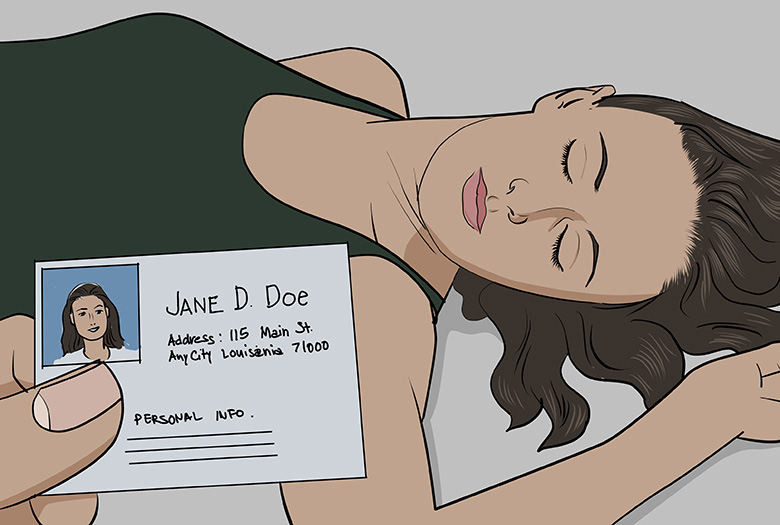 JANE D. Doe
Address: 115 Main St.
AnyCity Louisiania 71000
PERSONAL INFO.